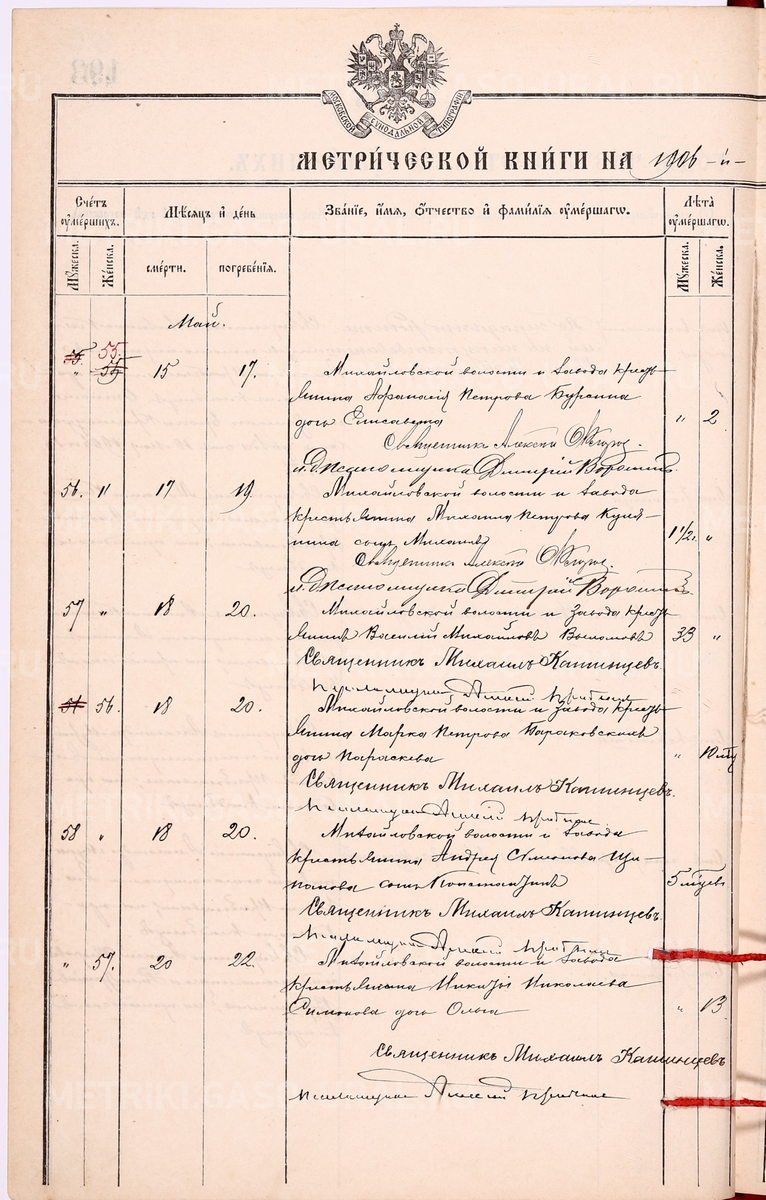 МОСКОВСКОЙ СУНОДАЛЬНОЙ ТИПОГРАФІИ
МЕТРИ́ЧЕСКОЙ КНИ́ГИ НА 1906 -й-
Счетъ ѹме́ршихъ. Мѣ́сяцъ и҆ де́нь Зва́нїе, и҆́мя, ѻ҆́тчество и҆ фамилїя ѹ҆ме́ршагѡ. Лѣ́та ѹ҆ме́ршагѡ.
Мѹ́жеска. Же́нска. сме́рти. погребе́нїя. Мѹ́жеска. Же́нска.
Май.
55.
" 15 17. Михайловской волости и завода кресть-
янина Афанасія Петрова
дочь Елисавета " 2
Священникъ Алексій
и. д. псаломщика Димитрій
56. " 17 19 Михайловской волости и завода
крестьянина Михаила Петрова Куля-
пина сынъ Михаилъ 1 1/2 г. "
Священникъ Алексій
и. д. псаломщика Димитрій
57 " 18 20. Михайловской волости и завода кресть-
янинъ Василій Михайловъ 33 "
Священникъ Михаилъ Кашинцевъ.
Псаломщикъ Алексій
56. 18 20. Михайловской волости и завода кресть-
янина Марка Петрова
дочь Параскева " 10
Священникъ Михаилъ Кашинцевъ.
Псаломщикъ Алексій
58 " 18 20. Михайловской волости и завода
крестьянина Андрея Симонова Щи-
панова сынъ Константинъ 5
Священникъ Михаилъ Кашинцевъ.
Псаломщикъ Алексій
" 57. 20 22. Михайловской волости и завода
крестьянина Никиты Николаева
Симонова дочь Ольга " 13
Священникъ Михаилъ Кашинцевъ
Псаломщикъ Алексій